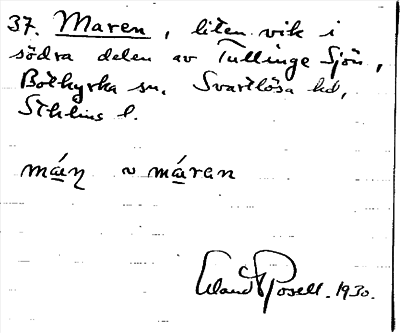 37. Maren, liten vik i
södra delen av Tullinge Sjön,
Botkyrka sn. Svartlösa hd,
Sthlms l.
máṇ ~ máran
Erland Rosell. 1930.